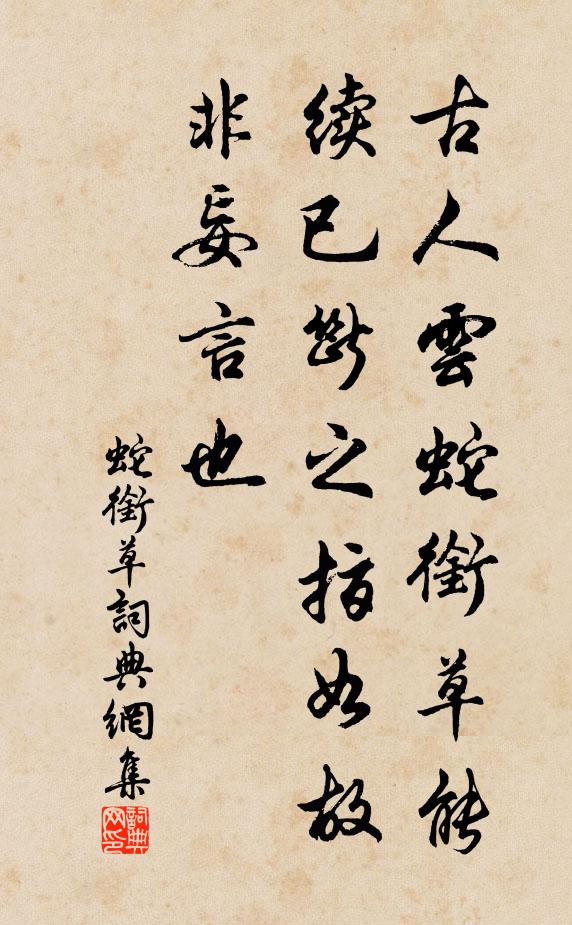 古人雲蛇銜草能
續已斷之指如故
非妄言也
蛇銜草詞典網集
詞典网印